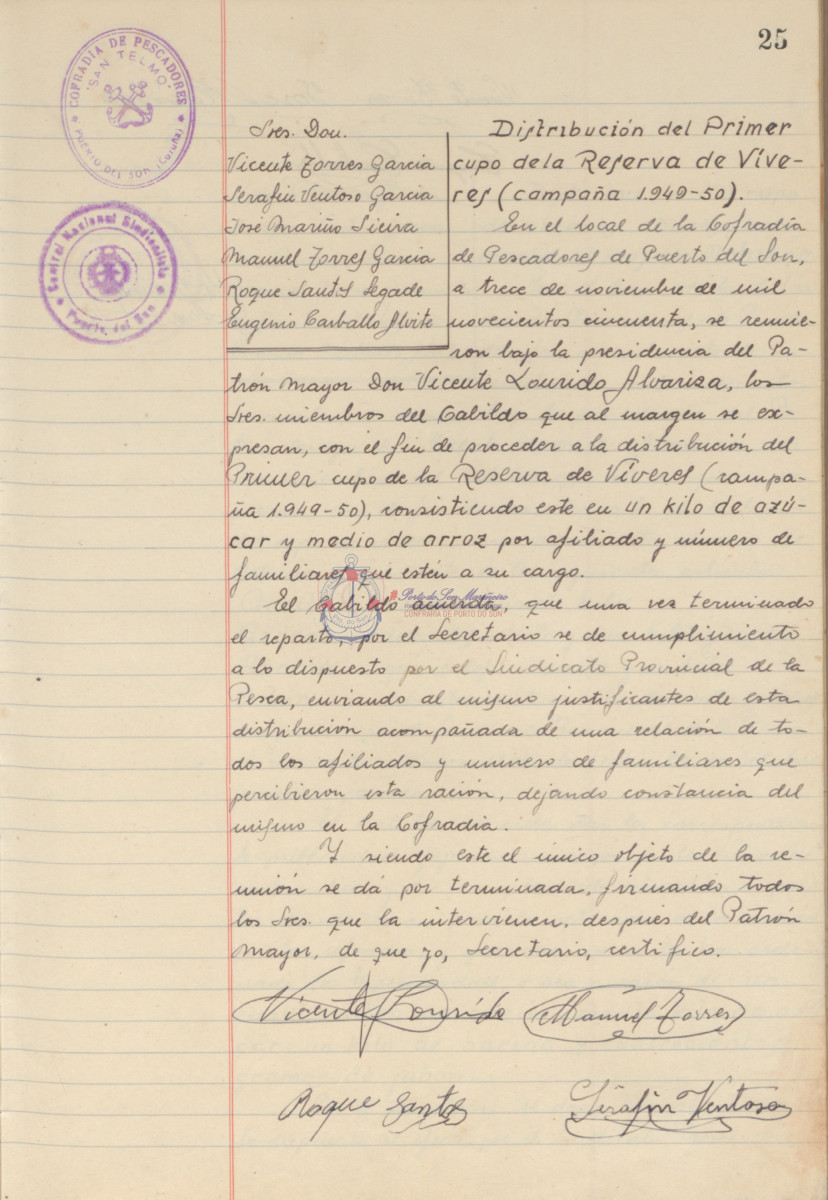 25
COFRADIA DE PESCADORES
"SAN TELMO"
PUERTO DEL SON (Coruña)
Central Nacional Sindicalista
Puerto del Son
Sres. Don.
Vicente Torres Garcia
Serafin Ventoso Garcia
José Mariño Sieira
Manuel Torres Garcia
Roque Santos Segade
Eugenio Carballo Alvite
Distribución del Primer
cupo de la Reserva de Víve-
res (campaña 1.949-50).
En el local de la Cofradía
de Pescadores de Puerto del Son,
a trece de noviembre de mil
novecientos cincuenta, se reunie-
ron bajo la presidencia del Pa-
trón Mayor Don Vicente Lourido Alvariza, los
Sres. miembros del Cabildo que al margen se ex-
presan, con el fin de proceder a la distribución del
Primer cupo de la Reserva de Víveres (campa-
ña 1.949-50), consistiendo este en un kilo de azú-
car y medio de arroz por afiliado y número de
familiares que estén a su cargo.
El Cabildo acuerda, que una vez terminado
el reparto, por el Secretario se de cumplimiento
a lo dispuesto por el Sindicato Provincial de la
Pesca, enviando al mismo justificantes de esta
distribución acompañada de una relación de to-
dos los afiliados y numero de familiares que
percibieron esta ración, dejando constancia del
mismo en la Cofradía.
Y siendo este el unico objeto de la re-
unión se dá por terminada, firmando todos
los Sres. que la intervienen, después del Patrón
Mayor, de que yo, Secretario, certifico.
Vicente Lourido
Manuel Torres
Roque Santos
Serafin Ventoso
Porto do Son Mariñeiro
CONFRARÍA DE PORTO DO SON